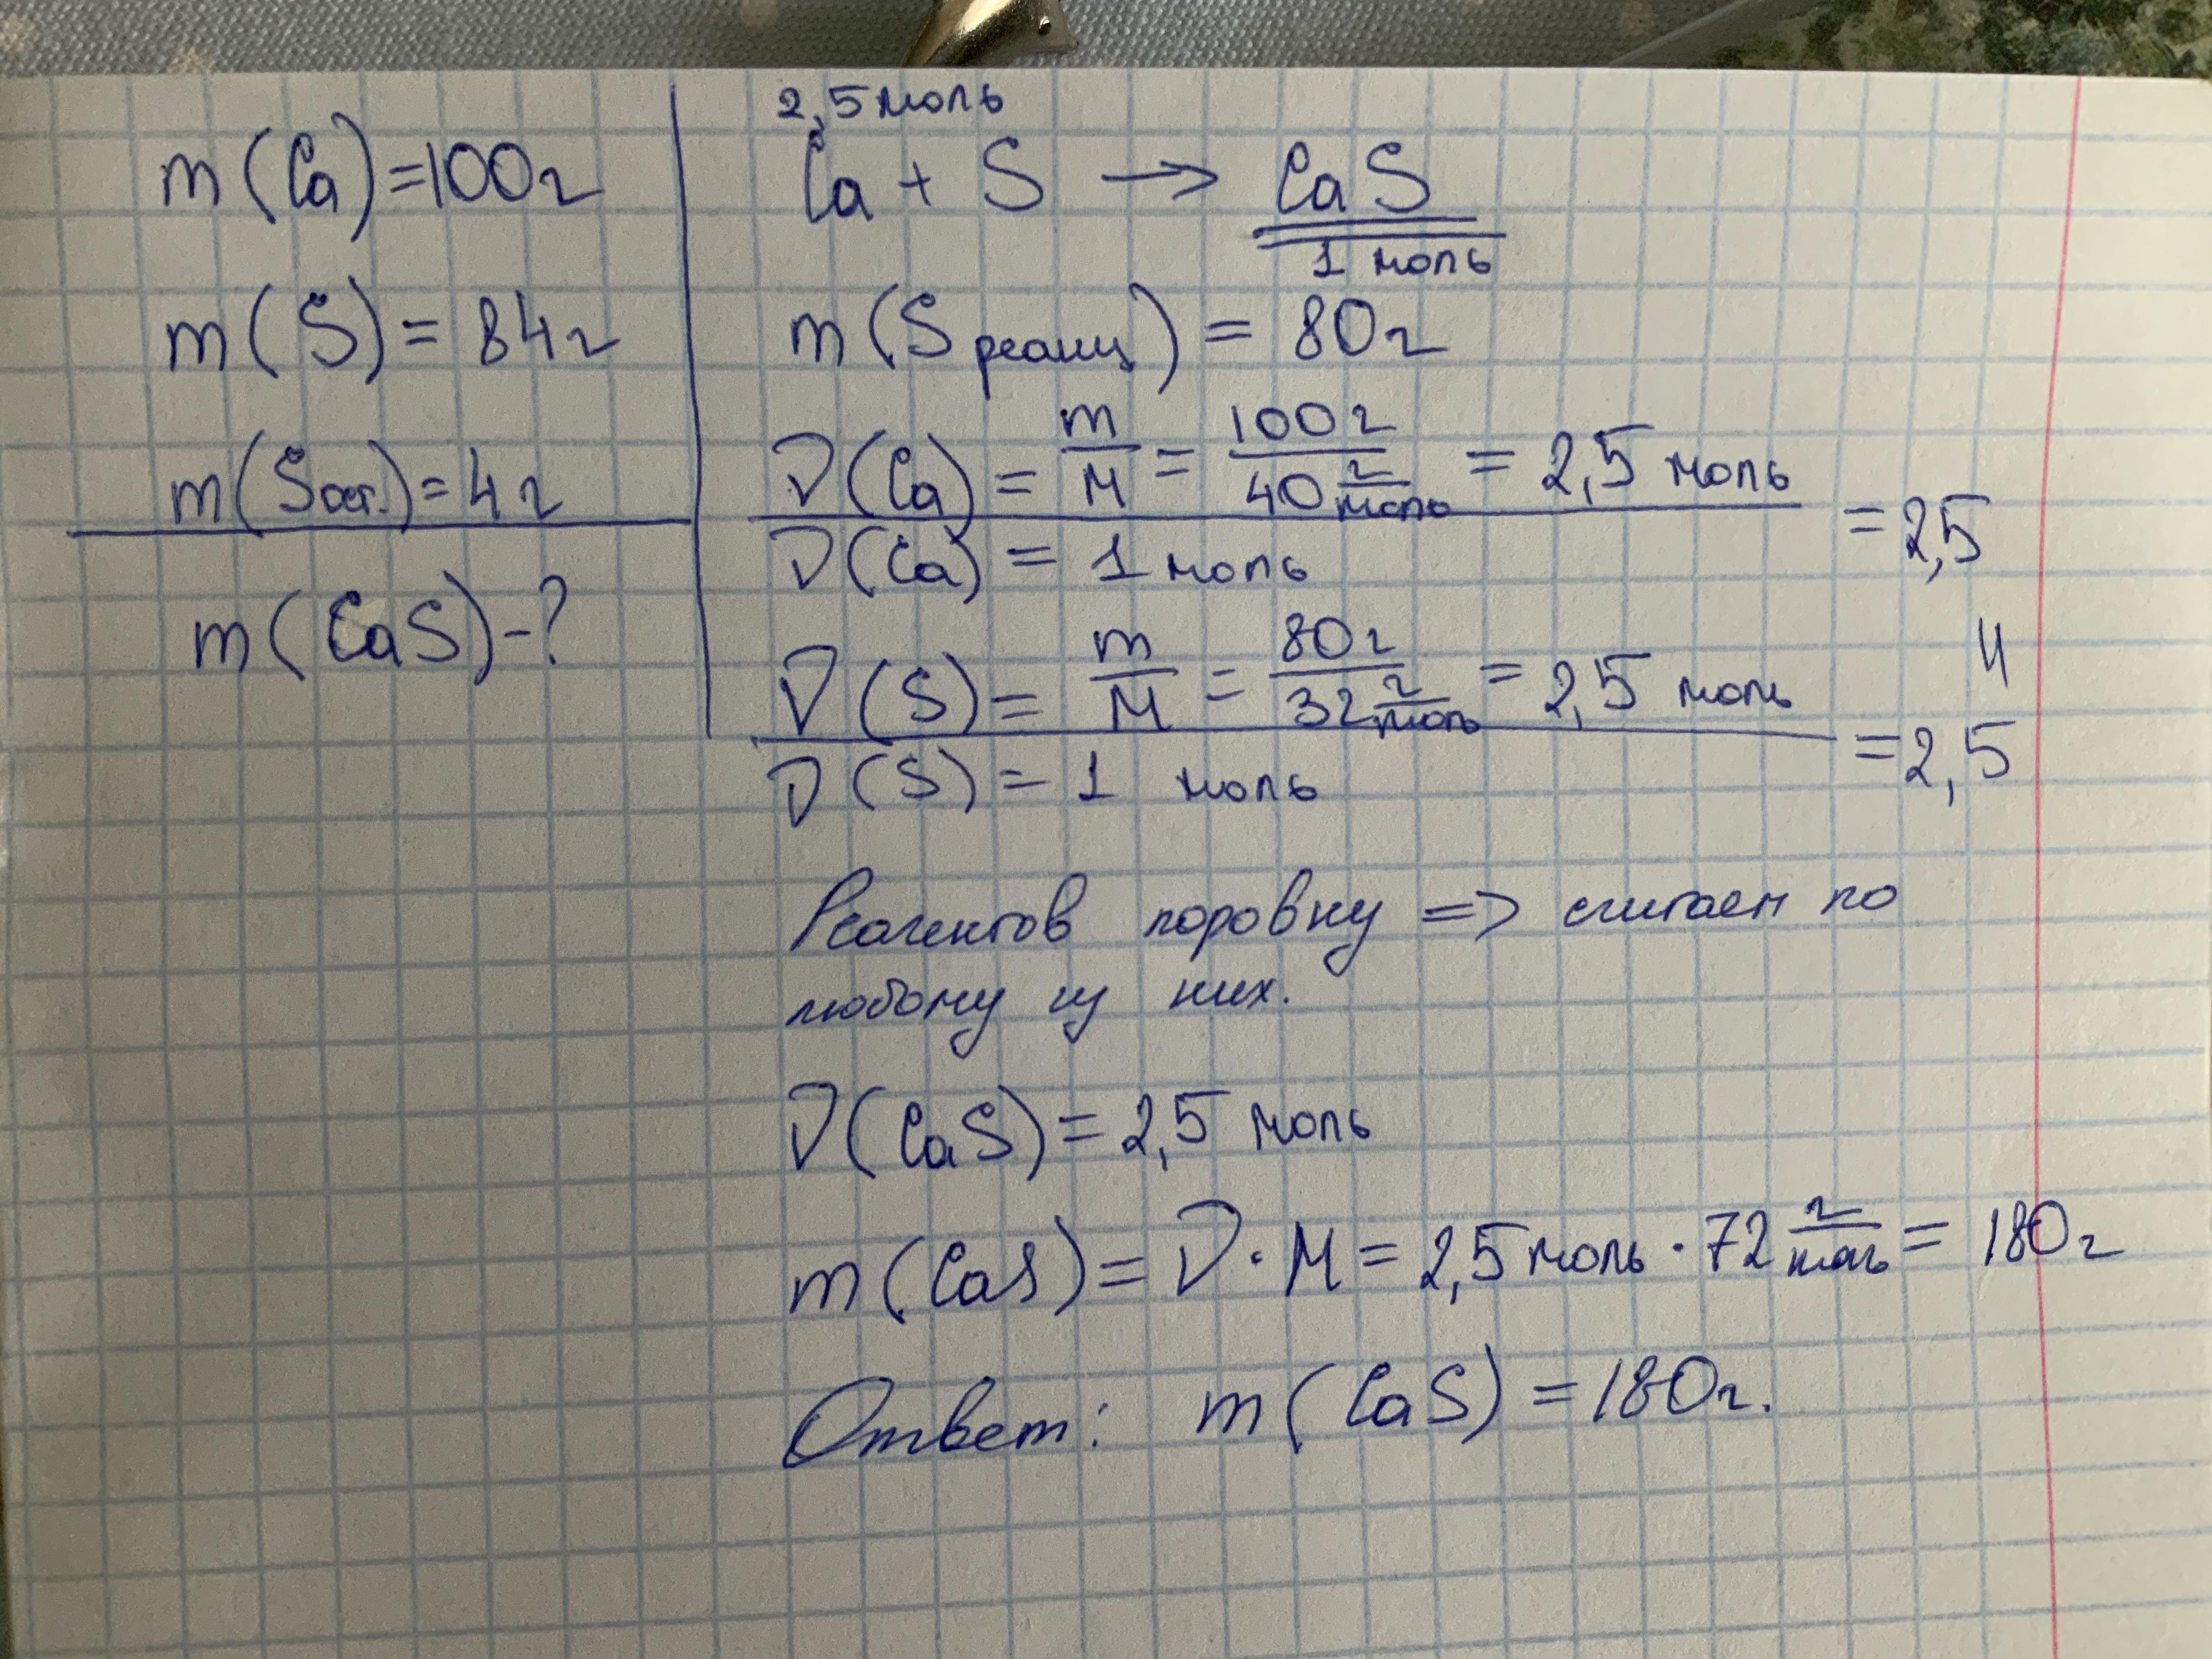 m(Ca)=100г
m(S)=84г
m(Sост.)=4г
m(CaS)-?
2,5 моль
Ca + S → CaS
1 моль
m(Sреакц) = 80г
ν(Ca) = m/M = 100г/40 г/моль = 2,5 моль
ν(Ca) = 1 моль
= 2,5
ν(S) = m/M = 80г/32 г/моль = 2,5 моль
ν(S) = 1 моль
=2,5
Реагентов поровну => считаем по
любому из них.
ν(CaS) = 2,5 моль
m(CaS) = ν·M = 2,5 моль · 72 г/моль = 180г
Ответ: m(CaS) = 180г.